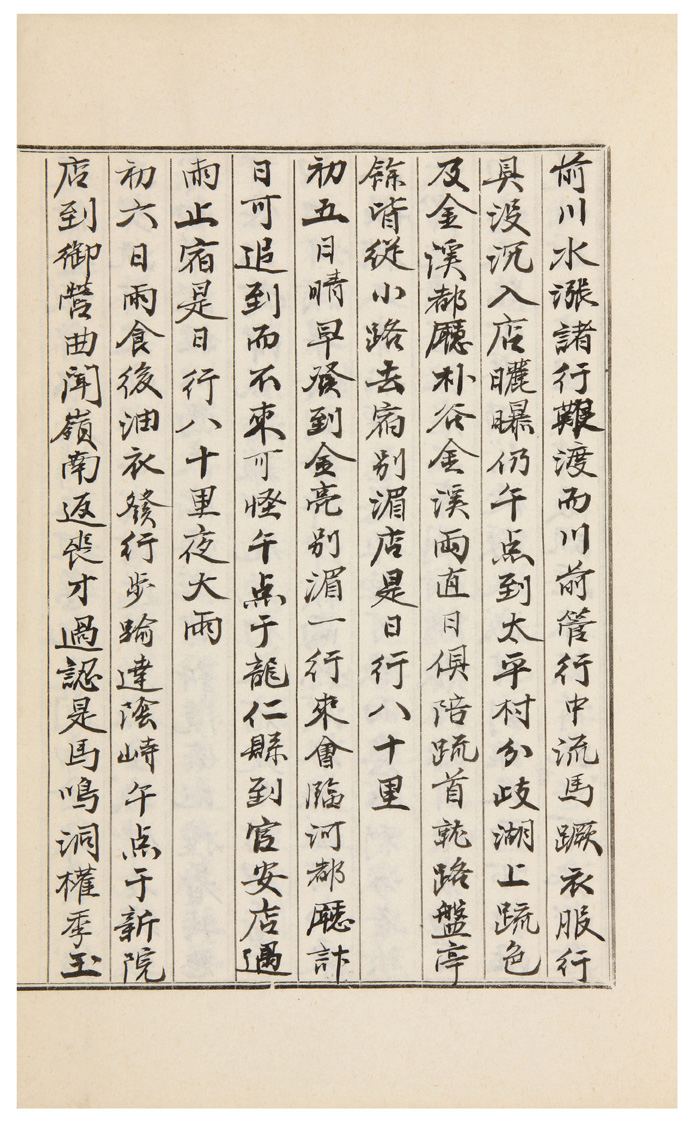 前川水漲諸行艱渡而川前管行中流馬蹶衣服行
具沒沉入店曬曝仍午点到太平村分歧湖上䟽色
及金溪都廳朴谷金溪兩直日俱陪䟽首就路盤亭
餘皆從小路去宿別湄店是日行八十里
初五日晴早發到金亮別湄一行來會臨河都廳訃
日可追到而不來可怪午点于龍仁縣到官安店遇
雨止宿是日行八十里夜大雨
初六日雨食後油衣發行步踰達陰峙午点于新院
店到御營曲聞嶺南返喪才過認是馬鳴洞權季玉